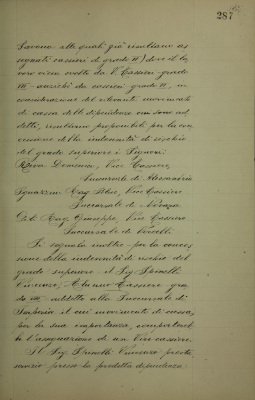 287
Savona alle quali già risultano as
segnati cassieri di grado VI) dove il la
voro viene svolto da V. Cassieri grado
VII - anzichè da cassieri grado VI, in
considerazione del rilevante movimento
di cassa delle dipendenze cui sono ad
detti, risultano proponibili per la con
cessione della indennità di rischio
del grado superiore i Signori:
Lorenzo, Vice Cassiere,
Succursale di Alessandria
Rag. Vice Cassiere
Succursale di Novara
Rag. Giuseppe, Vice Cassiere
Succursale di Vercelli
Si segnala inoltre per la conces
sione della indennità di rischio del
grado superiore il Sig. Brunelli
Vincenzo, Alunno Cassiere gra
do VIII addetto alla Succursale di
Imperia il cui movimento di cassa,
per la sua importanza, comporterebbe
l'assegnazione di un Vice cassiere.
Il Sig. Brunelli Vincenzo presta
servizio presso la predetta dipendenza